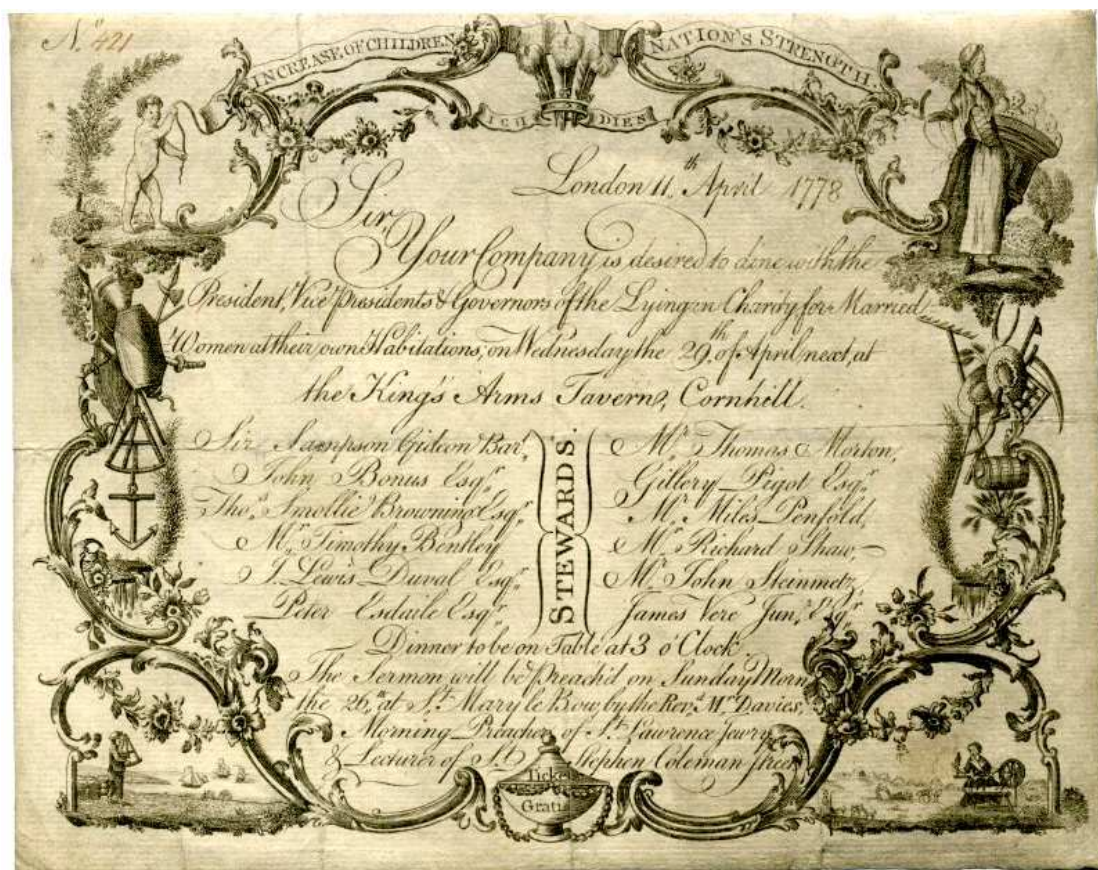 N.º 421
INCREASE OF CHILDREN
NATION'S STRENGTH.
ICH DIEN
London 11.th April 1778
Sir,
Your Company is desired to dine with the
President, Vice Presidents & Governors of the Lying in Charity for Married
Women at their own Habitations, on Wednesday the 29.th of April next, at
the King's Arms Tavern, Cornhill.
Sir Sampson Gideon Bar.t
John Bonus Esq.r
Tho.s Smollie Browning Esq.r
M.r Timothy Bentley
J. Lewis Duval Esq.r
Peter Esdaile Esq.r
STEWARDS.
M.r Thomas Morton,
Gillery Pigot Esq.r
M.r Miles Penfold,
M.r Richard Shaw,
M.r John Steinmetz,
James Vere Jun.r Esq.r
Dinner to be on Table at 3 o'Clock.
The Sermon will be Preach'd on Sunday Morn
the 26.th at S.t Mary le Bow, by the Rev.d M.r Davies,
Morning Preacher of S.t Lawrence Jewry
& Lecturer of S.t Stephen Coleman Street
Tickets
Gratis